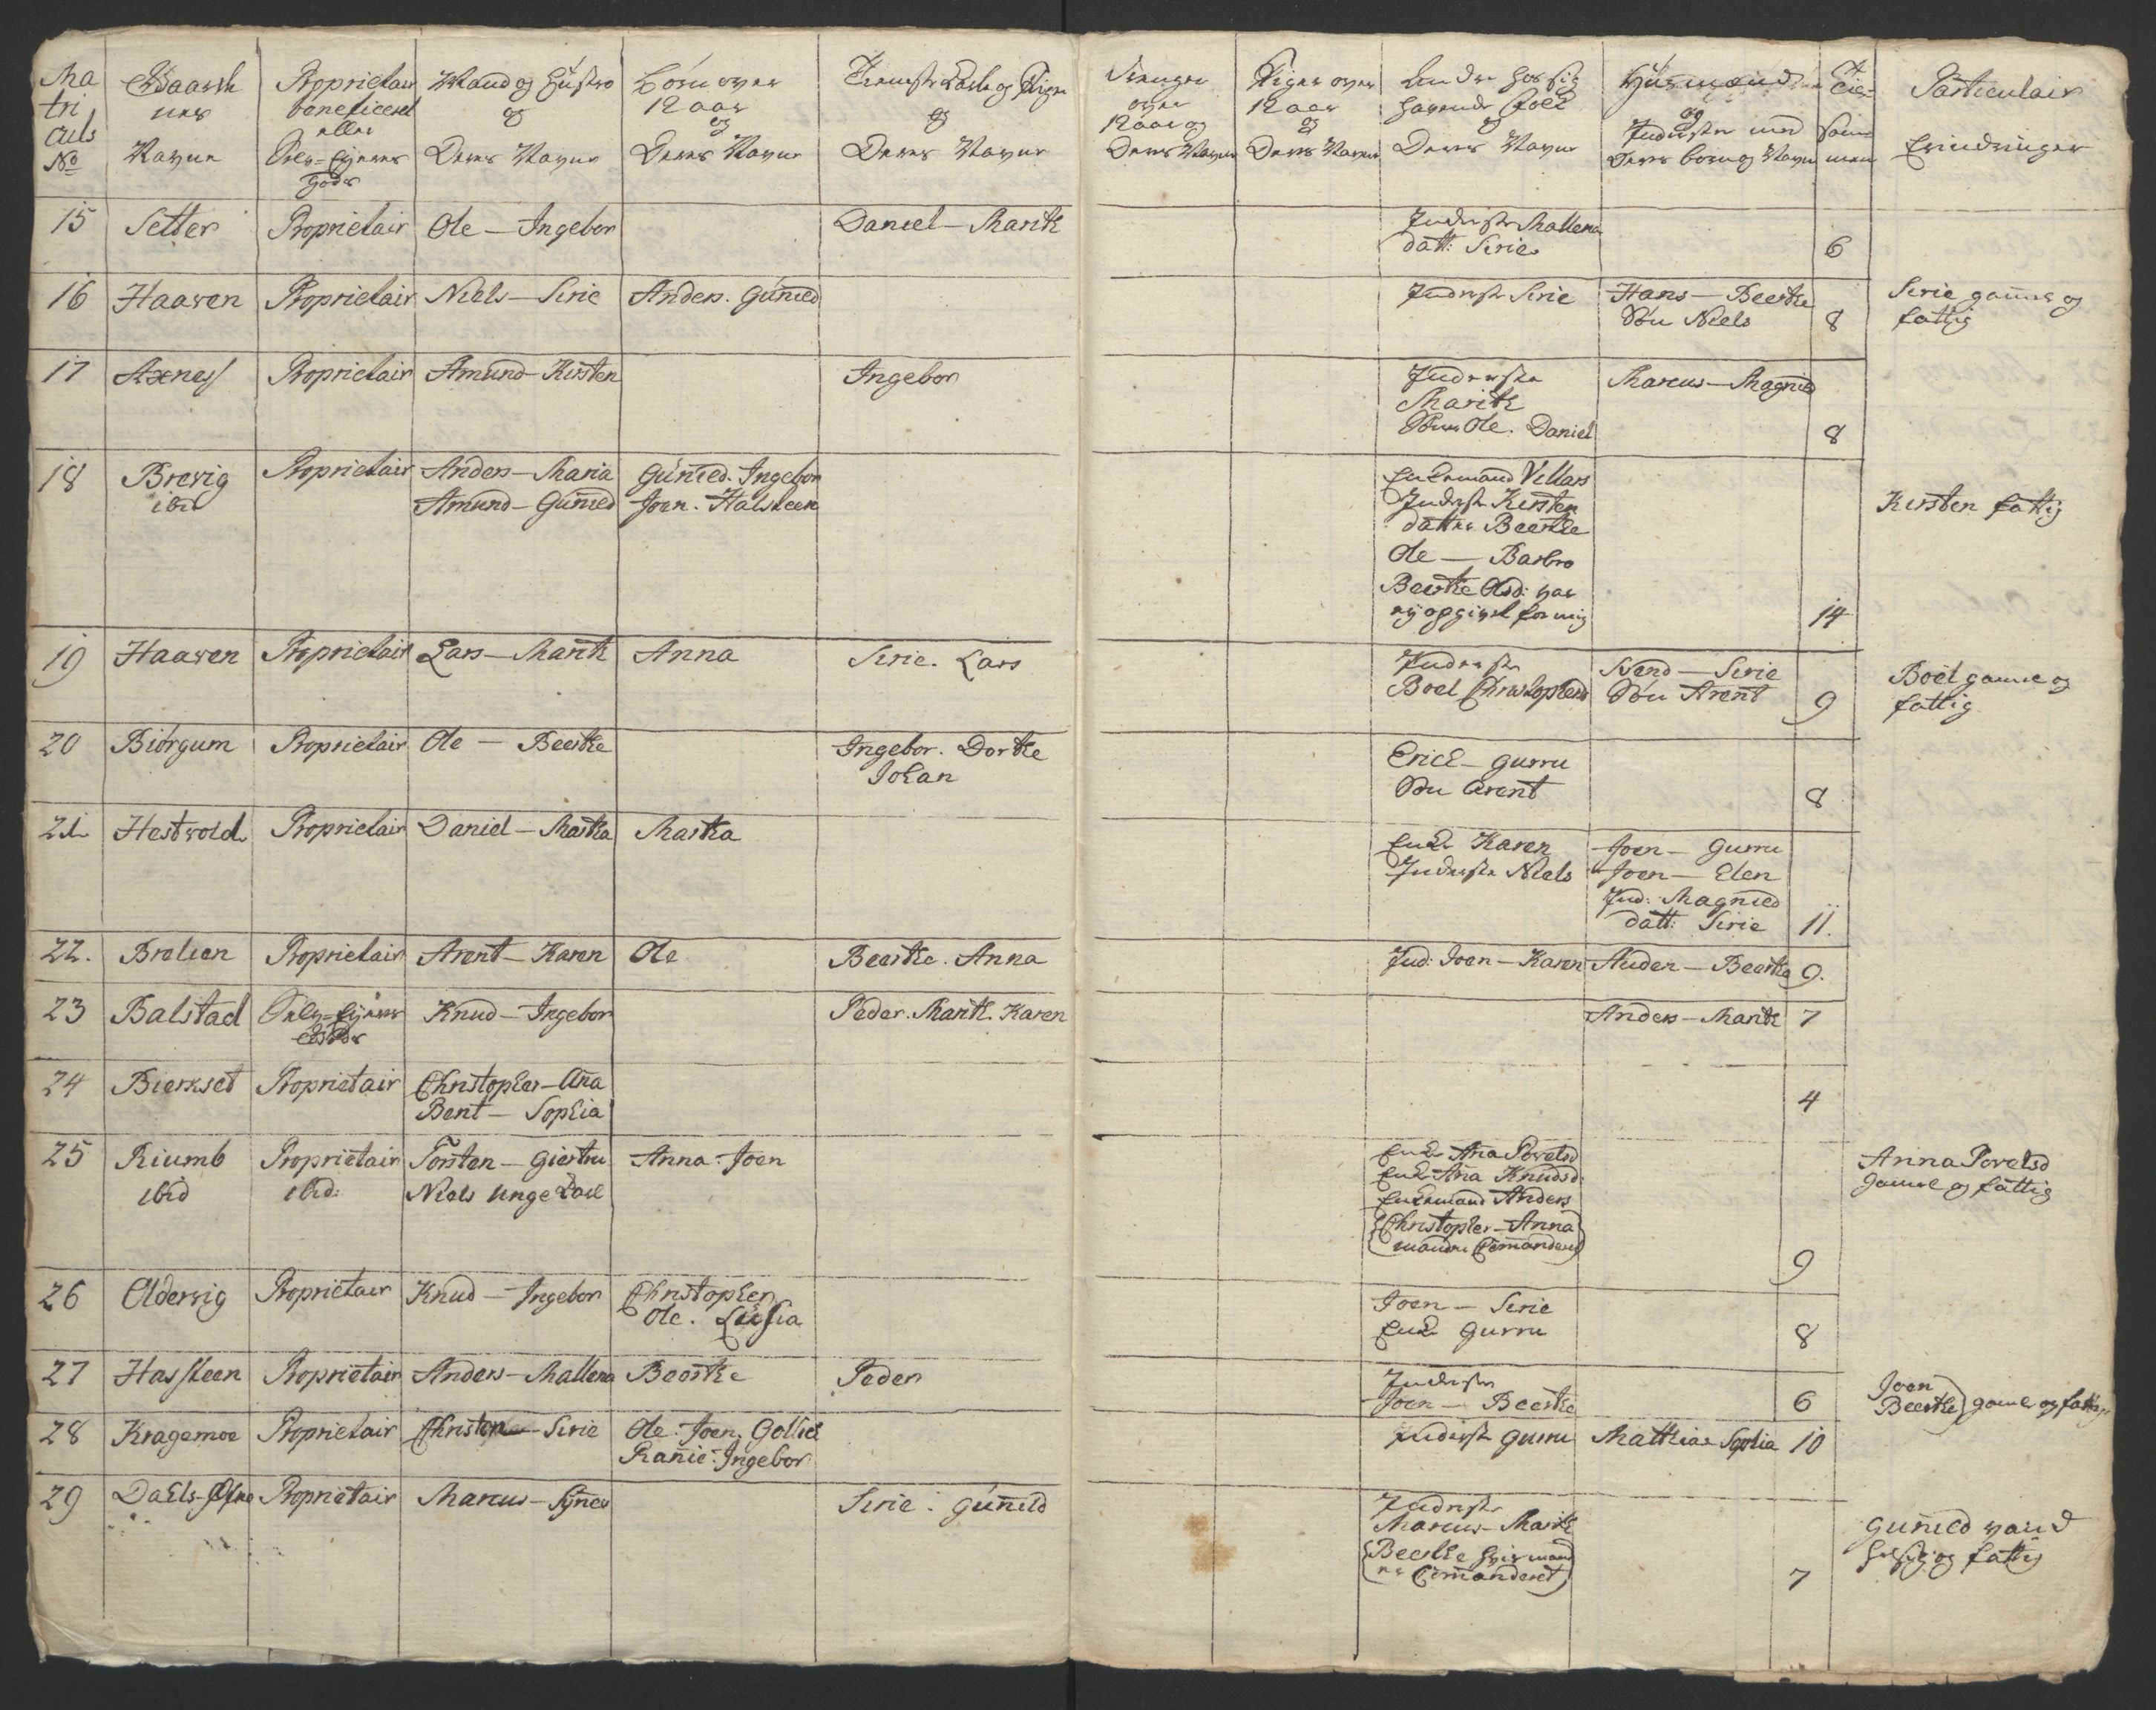 Ma Gaarde Proprietair Mand og Hustro Børn over Tieneste Karle og Piger Drenger Piger over Andre hos sig Huusmænd
tri nes beneficeret og 12 aar og over 12 aar havende Folk og Particulair
culs eller og 12 aar og og og Inderster med Som
No Navne Selv-Eyeres Deres Navne Deres Navne Deres Navne Deres Navne Deres Navne Deres Navne Deres born og Navne men Erindringer
Gods
15 Setter Proprietair Ole — Ingebor Daniel — Marith Inderste Mallena
datt: Sirie 6
16 Haaven Proprietair Niels — Sirie Anders. Gunild Inderste Sirie Hans — Beerthe Sirie gamel og
Søn Niels 8 fattig
17 Axness Proprietair Amund — Kirsten Ingebor Inderste Marcus — Magnild
Marith
Søner Ole. Daniel 8
18 Brevig Proprietair Anders — Maria Gunild. Ingebor Enkemand Villars
ibid Amund — Gunild Joen. Halsteen Inderste Kirsten Kirsten fattig
datter Beerthe
Ole — Barbro
Beerthe Olsd: var
ey opgivet for mig 14
19 Haaven Proprietair Lars — Marith Anna Sirie. Lars Inderste Svend — Sirie Boel gamel og
Boel Christophersd Søn Arent 9 fattig
20 Biørgum Proprietair Ole — Beerthe Ingebor. Dorthe Erich — Gurru
Johan Søn Arent 8
21 Hestvold Proprietair Daniel — Martha Martha Enke Karen Joen — Gurru
Inderste Niels Joen — Elen
Ind: Magnild
datt: Sirie 11.
22. Bralien Proprietair Arent — Karen Ole Beerthe. Anna Ind: Joen — Karen Auden — Beerthe 9.
23 Balstad Selv-Eyeres Knud — Ingebor Peder. Marith. Karen Anders — Marith 7
24 Bierkset Proprietair Christopher — Ana
Bent — Sophia 4
25 Riumb Proprietair Torsten — Giertru Anna. Joen Enke Ana Povelsd Anna Povelsd
ibid ibid: Niels unge Karl Enke Ana Knudsd: gamel og fattig
Enkemand Anders
Christopher — Anna
9
26 Oldervig Proprietair Knud — Ingebor Christopher Joen — Sirie
Ole. Lusia Enke Gurru 8
27 Hassteen Proprietair Anders — Mallena Beerthe Peder Inderste Joen
Joen — Beerthe 6 Beerthe gamel og fattige
28 Kragemoe Proprietair Christen — Sirie Ole. Joen. Gollich Inderste Gurru Mathias Sophia 10
Ranie. Ingebor
29 Proprietair Marcus — Synev Sirie. Gunild Inderste
Marcus — Marith Gunild
Beerthe og fattig
7